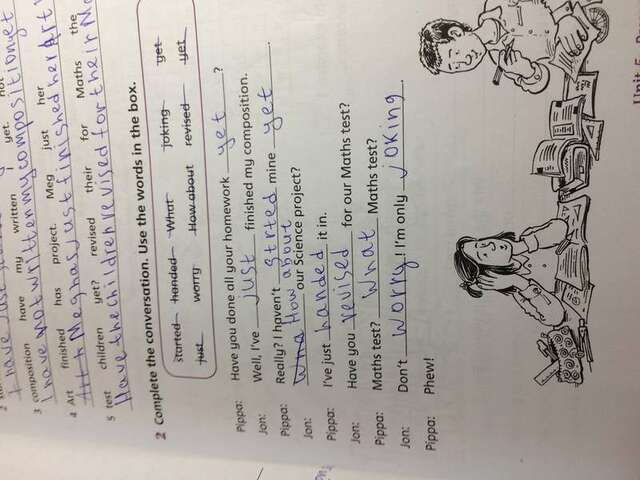 I have just
3 composition have my written yet. not
I have not written my composition yet
4 Art finished has project. Meg just her
Art h Meg has just finished her Art
5 test children yet? revised their for Maths the
Have the children revised for their Ma
2 Complete the conversation. Use the words in the box.
started handed What joking yet
just worry How about revised yet
Pippa: Have you done all your homework yet ?
Jon: Well, I've just finished my composition.
Pippa: Really? I haven't strted mine yet .
Jon: Wha How about our Science project?
Pippa: I've just handed it in.
Jon: Have you revised for our Maths test?
Pippa: Maths test? What Maths test?
Jon: Don't worry ! I'm only joking .
Pippa: Phew!
Unit 5